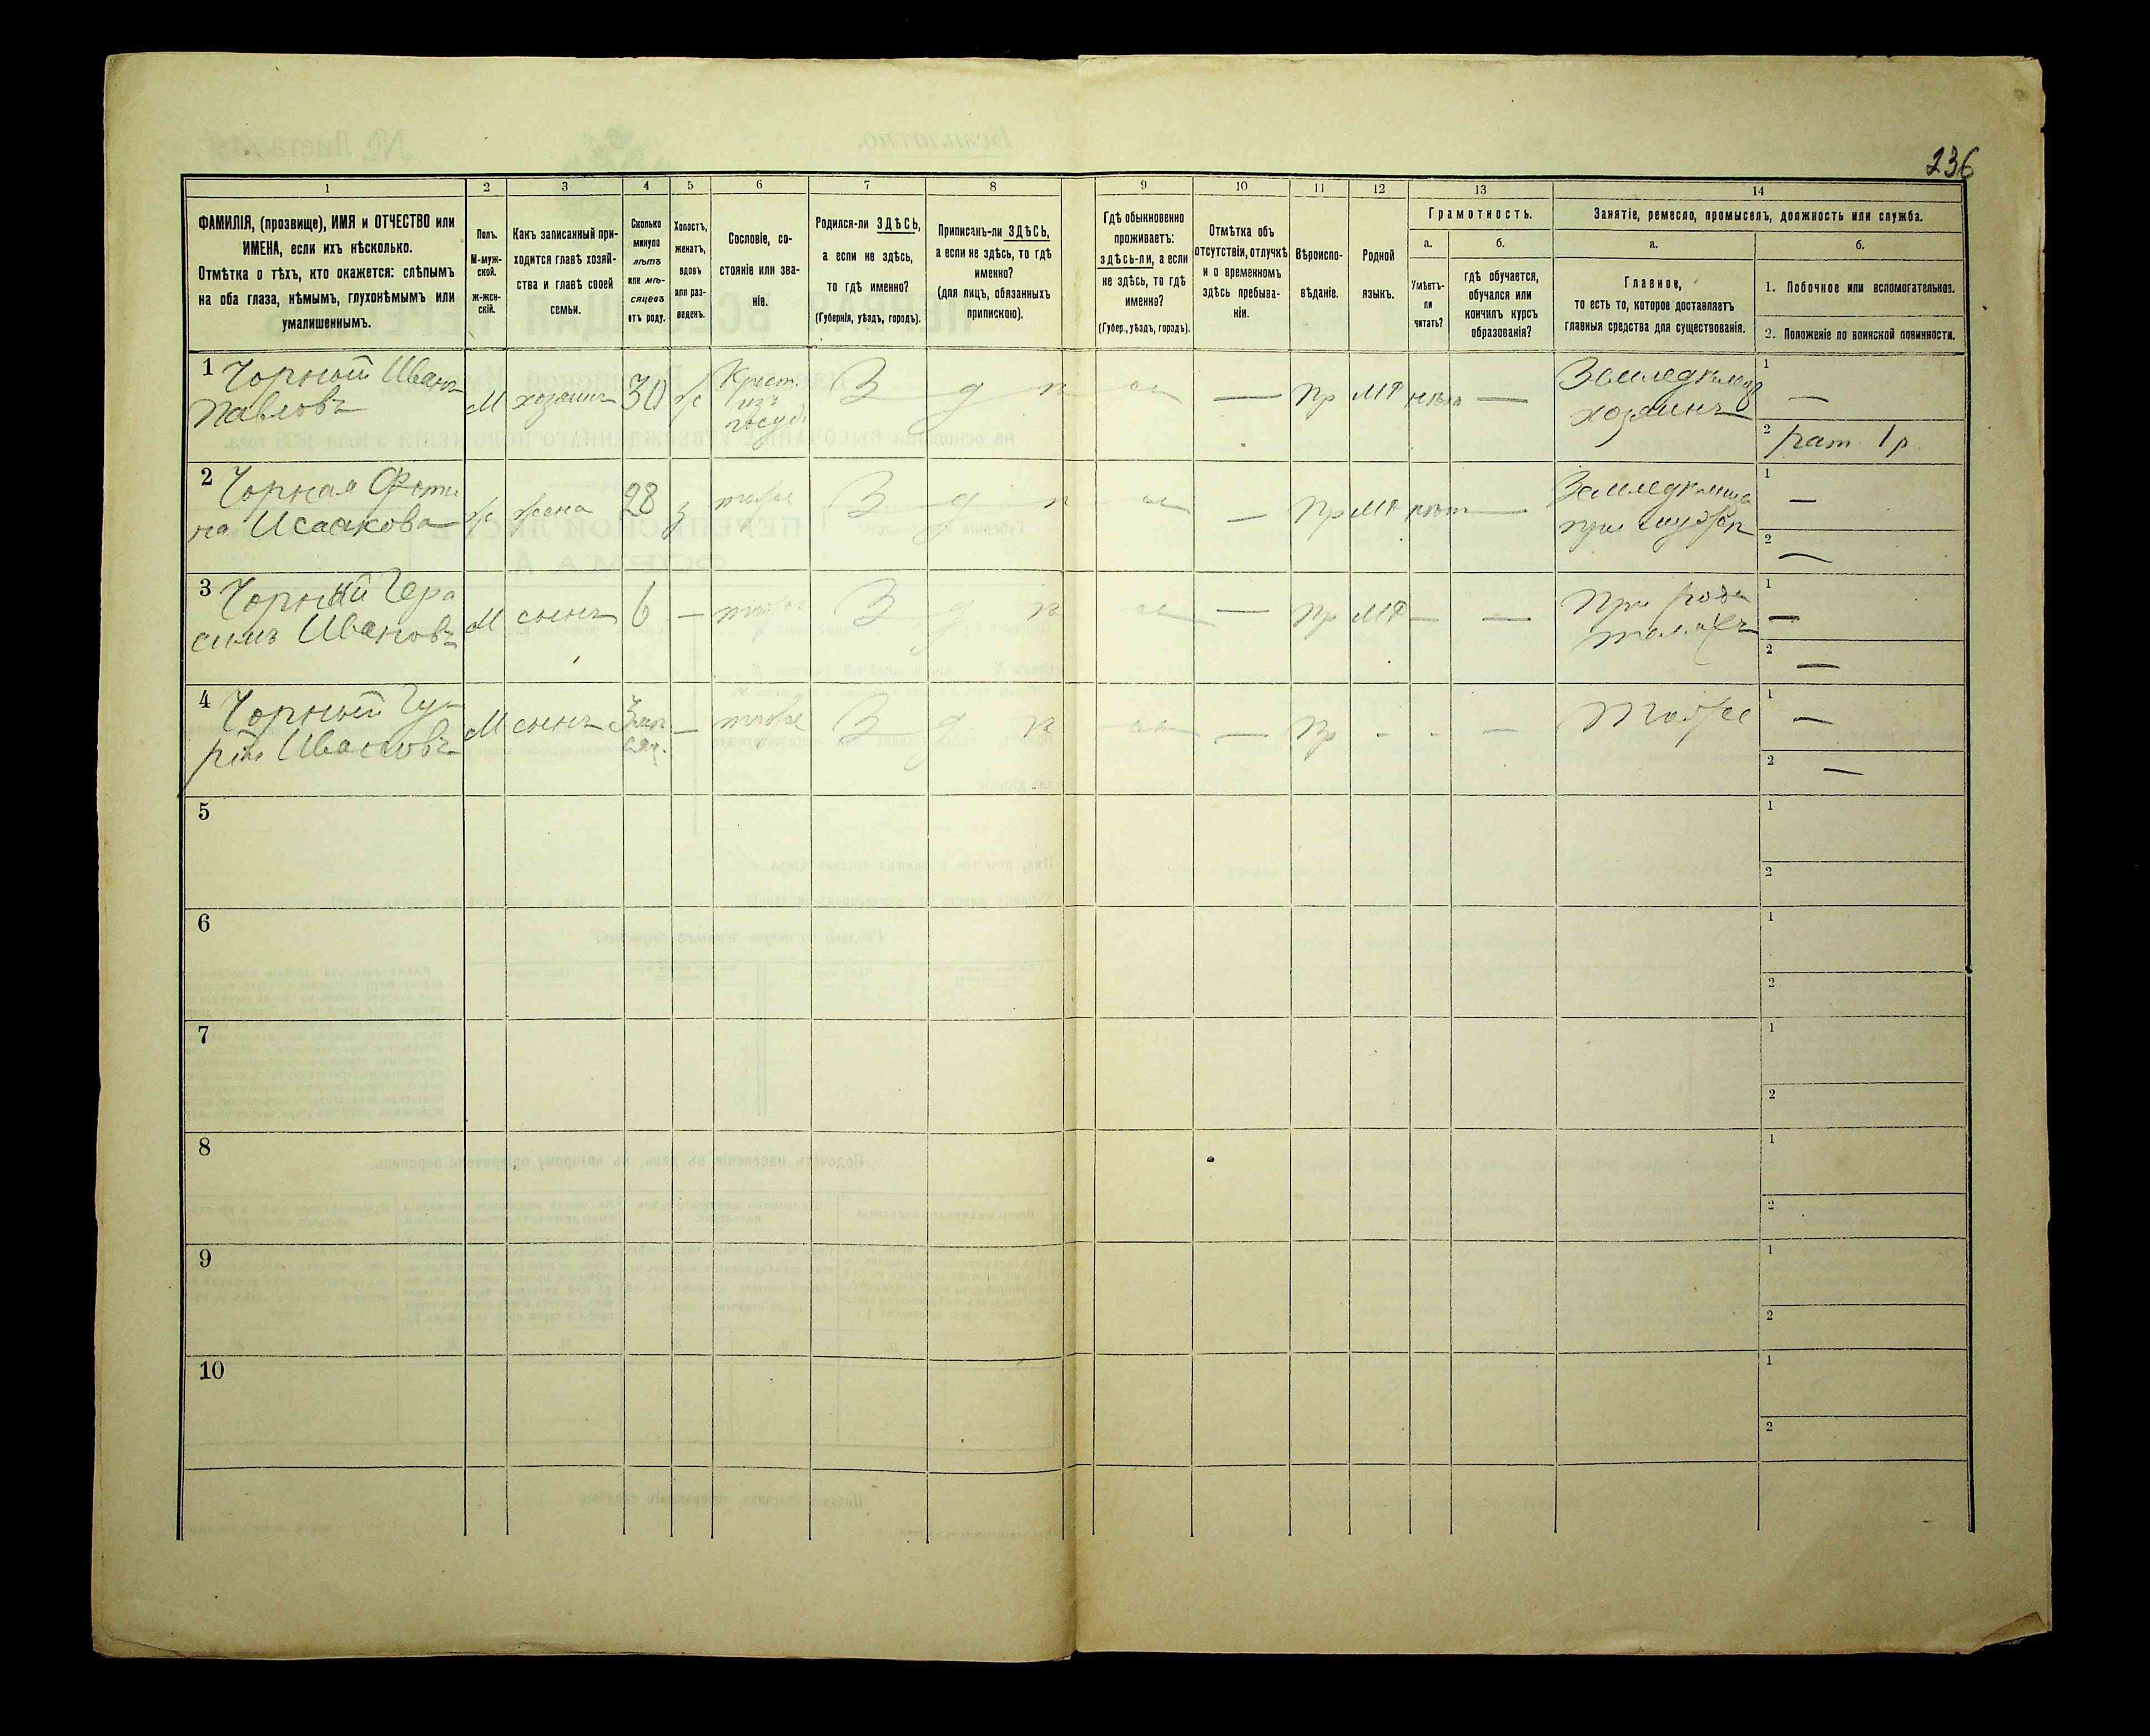 236
1 2 3 4 5 6 7 8 9 10 11 12 13 14
ФАМИЛІЯ, (прозвище), ИМЯ и ОТЧЕСТВО или
ИМЕНА, если ихъ нѣсколько.
Отмѣтка о тѣхъ, кто окажется: слѣпымъ
на оба глаза, нѣмымъ, глухонѣмымъ или
умалишеннымъ.
Полъ.
М-муж-
ской.
ж-жен-
скій.
Какъ записанный при-
ходится главѣ хозяй-
ства и главѣ своей
семьи.
Сколько
минуло
лѣтъ
или мѣ-
сяцевъ
отъ роду.
Холостъ,
женатъ,
вдовъ
или раз-
веденъ.
Сословіе, со-
стояніе или зва-
ніе.
Родился-ли ЗДѢСЬ,
а если не здѣсь,
то гдѣ именно?
(Губернія, уѣздъ, городъ).
Приписанъ-ли ЗДѢСЬ,
а если не здѣсь, то гдѣ
именно?
(для лицъ, обязанныхъ
припискою).
Гдѣ обыкновенно
проживаетъ:
здѣсь-ли, а если
не здѣсь, то гдѣ
именно?
(Губер., уѣздъ, городъ).
Отмѣтка объ
отсутствіи, отлучкѣ
и о временномъ
здѣсь пребыва-
ніи.
Вѣроиспо-
вѣданіе.
Родной
языкъ.
Грамотность.
а.
Умѣетъ-
ли
читать?
б.
гдѣ обучается,
обучался или
кончилъ курсъ
образованія?
Занятіе, ремесло, промыселъ, должность или служба.
а.
Главное,
то есть то, которое доставляетъ
главныя средства для существованія.
б.
1. Побочное или вспомогательное.
2. Положеніе по воинской повинности.
1 Чорный Иванъ
Павловъ
М
хозяинъ
30
ж
Крест.
изъ
госуд.
З д п
—
Пр
МР
нѣтъ
—
хозяинъ
1 —
2 рат 1 р.
2 Чорная Фоти
на Исаакова
ж
жена
28
з
тоже
З д п
—
Пр
МР
нѣт
—
при мужѣ
1 —
2 —
3 Чорный Гера
симъ Ивановъ
М
сынъ
6
—
тоже
З д п
—
Пр
МР
—
—
При роди
теляхъ
1 —
2 —
4 Чорный Гу
рій Ивановъ
М
сынъ
3 мѣ
сяц.
—
тоже
З д п
—
Пр
-
-
—
Тоже
1 —
2 —
5 1
2
6 1
2
7 1
2
8 1
2
9 1
2
10 1
2